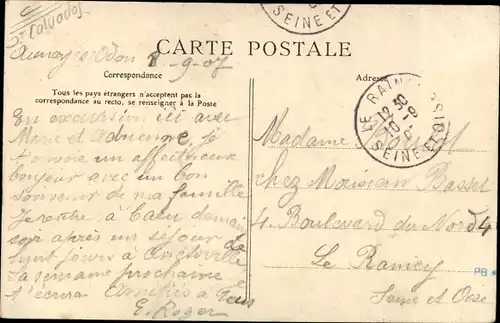 (Calvados)
SEINE ET
CARTE POSTALE
Aunay s/ Odon 8-9-07
Correspondance
Tous les pays étrangers n'acceptent pas la
correspondance au recto, se renseigner à la Poste
En excursion ici avec
Marie et Adrienne, je
t'envoie un affectueux
bonjour avec un bon
souvenir de ma famille
Je rentre à Caen demain
soir après un séjour de
sept jours à
la semaine prochaine
t'écrira Amitiés à tous
E. Roger
Adresse
LE RAINCY
12 30
10 -9
SEINE ET OISE
Madame
chez Monsieur Basset
4 Boulevard du Nord 4
Le Raincy
Seine et Oise
PB